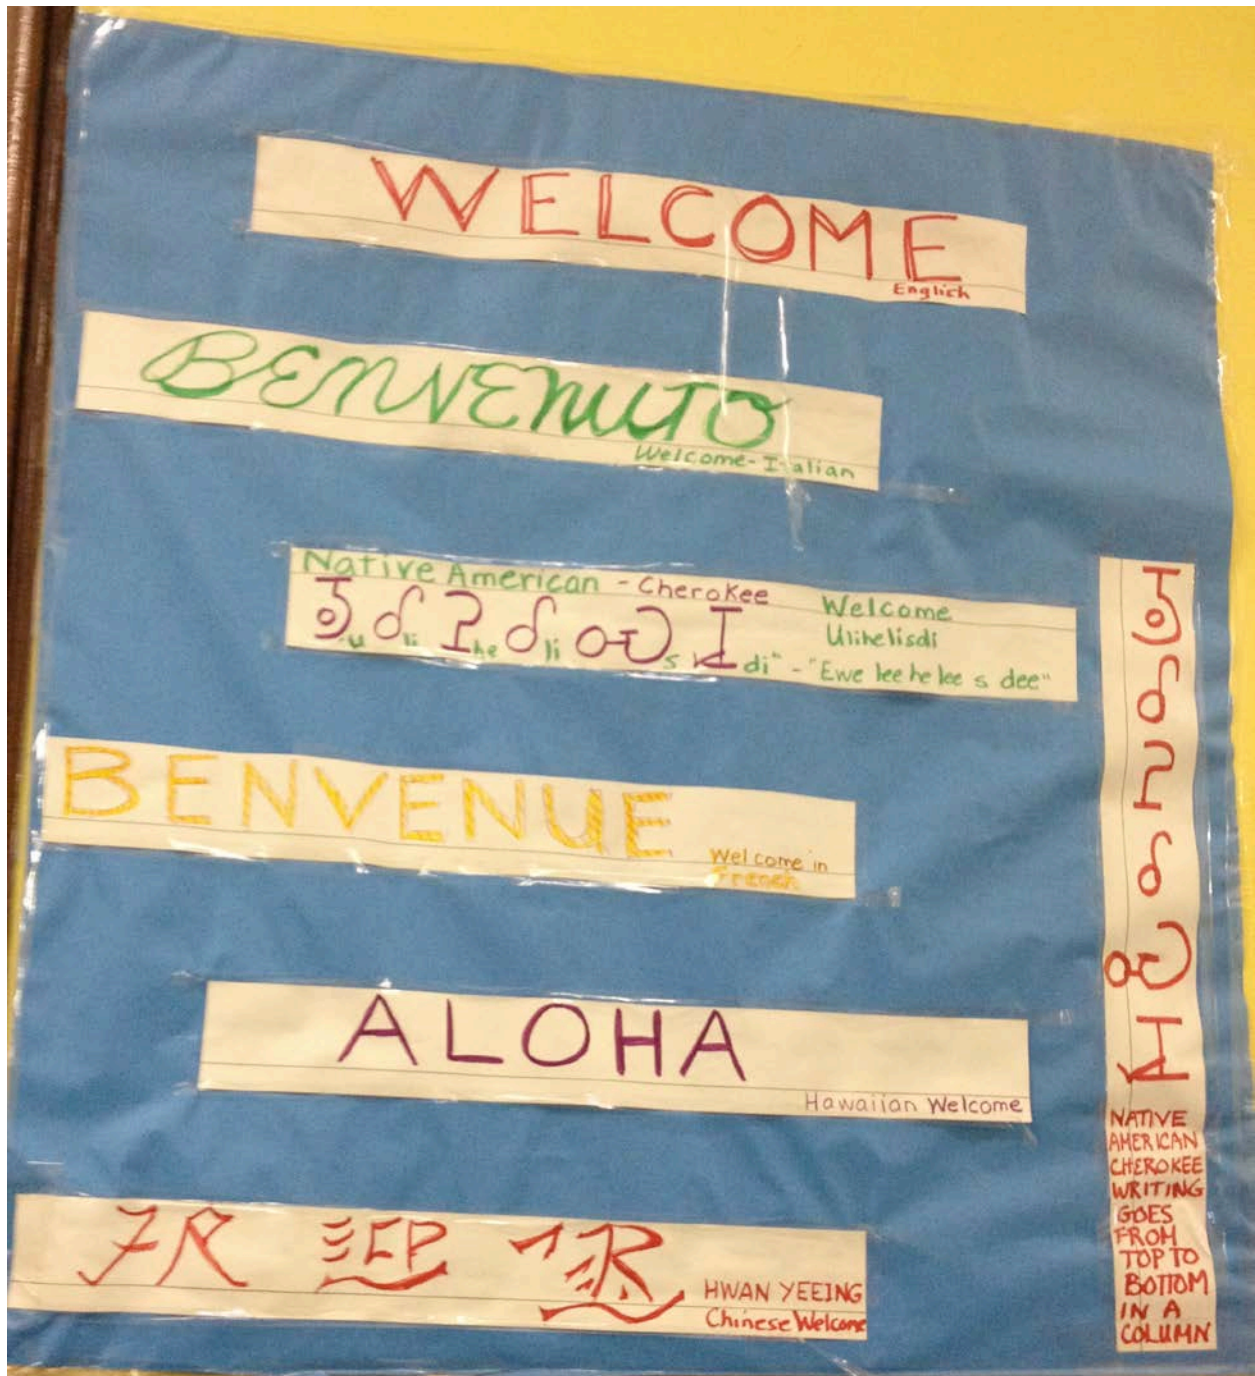 WELCOME
English
BENVENUTO
Welcome-Italian
Native American - Cherokee
Welcome
ᎤᎵᎮᎵᏍᏗ
Ulihelisdi
"u li he li s di" - "Ewe lee he lee s dee"
BENVENUE
Welcome in
French
ALOHA
Hawaiian Welcome
欢 迎 您
HWAN YEEING
Chinese Welcome
ᎤᎵᎮᎵᏍᏗ
NATIVE
AMERICAN
CHEROKEE
WRITING
GOES
FROM
TOP TO
BOTTOM
IN A
COLUMN